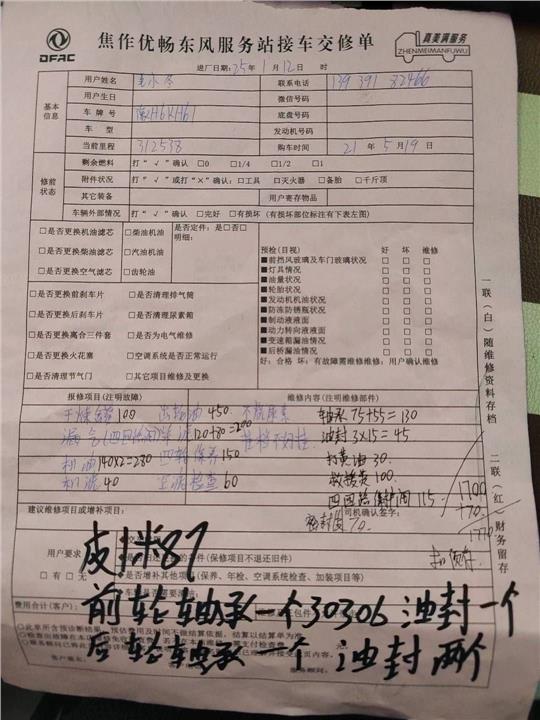 DFAC
焦作优畅东风服务站接车交修单
真美满服务
ZHENMEIMANFUWU
进厂日期:25年1月12日 时
基本信息
用户姓名 联系电话 139 391 82466
用户生日 微信号码
车牌号 豫H6KH61 底盘号码
车型 发动机号码
当前里程 312538 购车时间 21年5月19日
修前状态
剩余燃料 打“√”确认 □0 □1/4 □1/2 □1
附件状况 打“√”或打“×”确认:□工具 □灭火器 □备胎 □千斤顶
其它装备 用户寄存物品
车辆外部情况 打“√”确认 □完好 □有损坏(有损坏部位标注有下表左图)
□是否更换机油滤芯 □柴油机油 是否定件:是□否□
□是否更换柴油滤芯 □汽油机油 明细:
□是否更换空气滤芯 □齿轮油
□是否更换前刹车片 □是否清理排气筒
□是否更换后刹车片 □是否清理尿素箱
□是否更换离合三件套 □是否为电气维修
□是否更换火花塞 □空调系统是否正常运行
□是否清理节气门 □其它项目维修及更换
预检(目视) 好 坏 维修
■前挡风玻璃及车门玻璃状况 □ □ □
■灯具情况 □ □ □
■油量状况 □ □ □
■轮胎状况 □ □ □
■发动机机油状况 □ □ □
■防冻防锈瓶状况 □ □ □
■制动液液面 □ □ □
■动力转向液液面 □ □ □
■变速箱漏油情况 □ □ □
■后桥漏油情况 □ □ □
好:合格 坏:有故障需维修维修:用户确认维修
一联(白)随维修资料存档 二联(红)财务留存
报修项目(注明故障) 维修内容(注明维修部件)
100 齿轮油 450 不烧尿素 轴承 75+55=130
漏气(四回 120+80=200 油封 3×15=45
机油 140×2=280 四轮保养 150 打黄油 30
机滤 40 检查 60 救援费 100
四回路保护阀 115
1700
+70
1770
建议维修项目或增补项目: 司机确认签字:
密封圈 70
用户要求
□有 □无
是否增补其他项目(保养、年检、空调系统检查、加装项目等)
皮卡87
前轮轴承一个30306 油封一个
费用合计(客户):
后轮轴承一个 油封两个